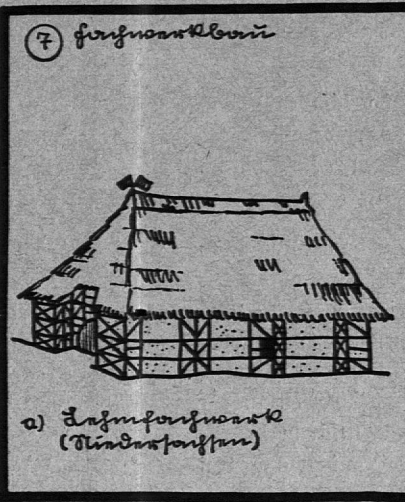 7 Fachwerkbau
a) Lehmfachwerk
(Niedersachsen)